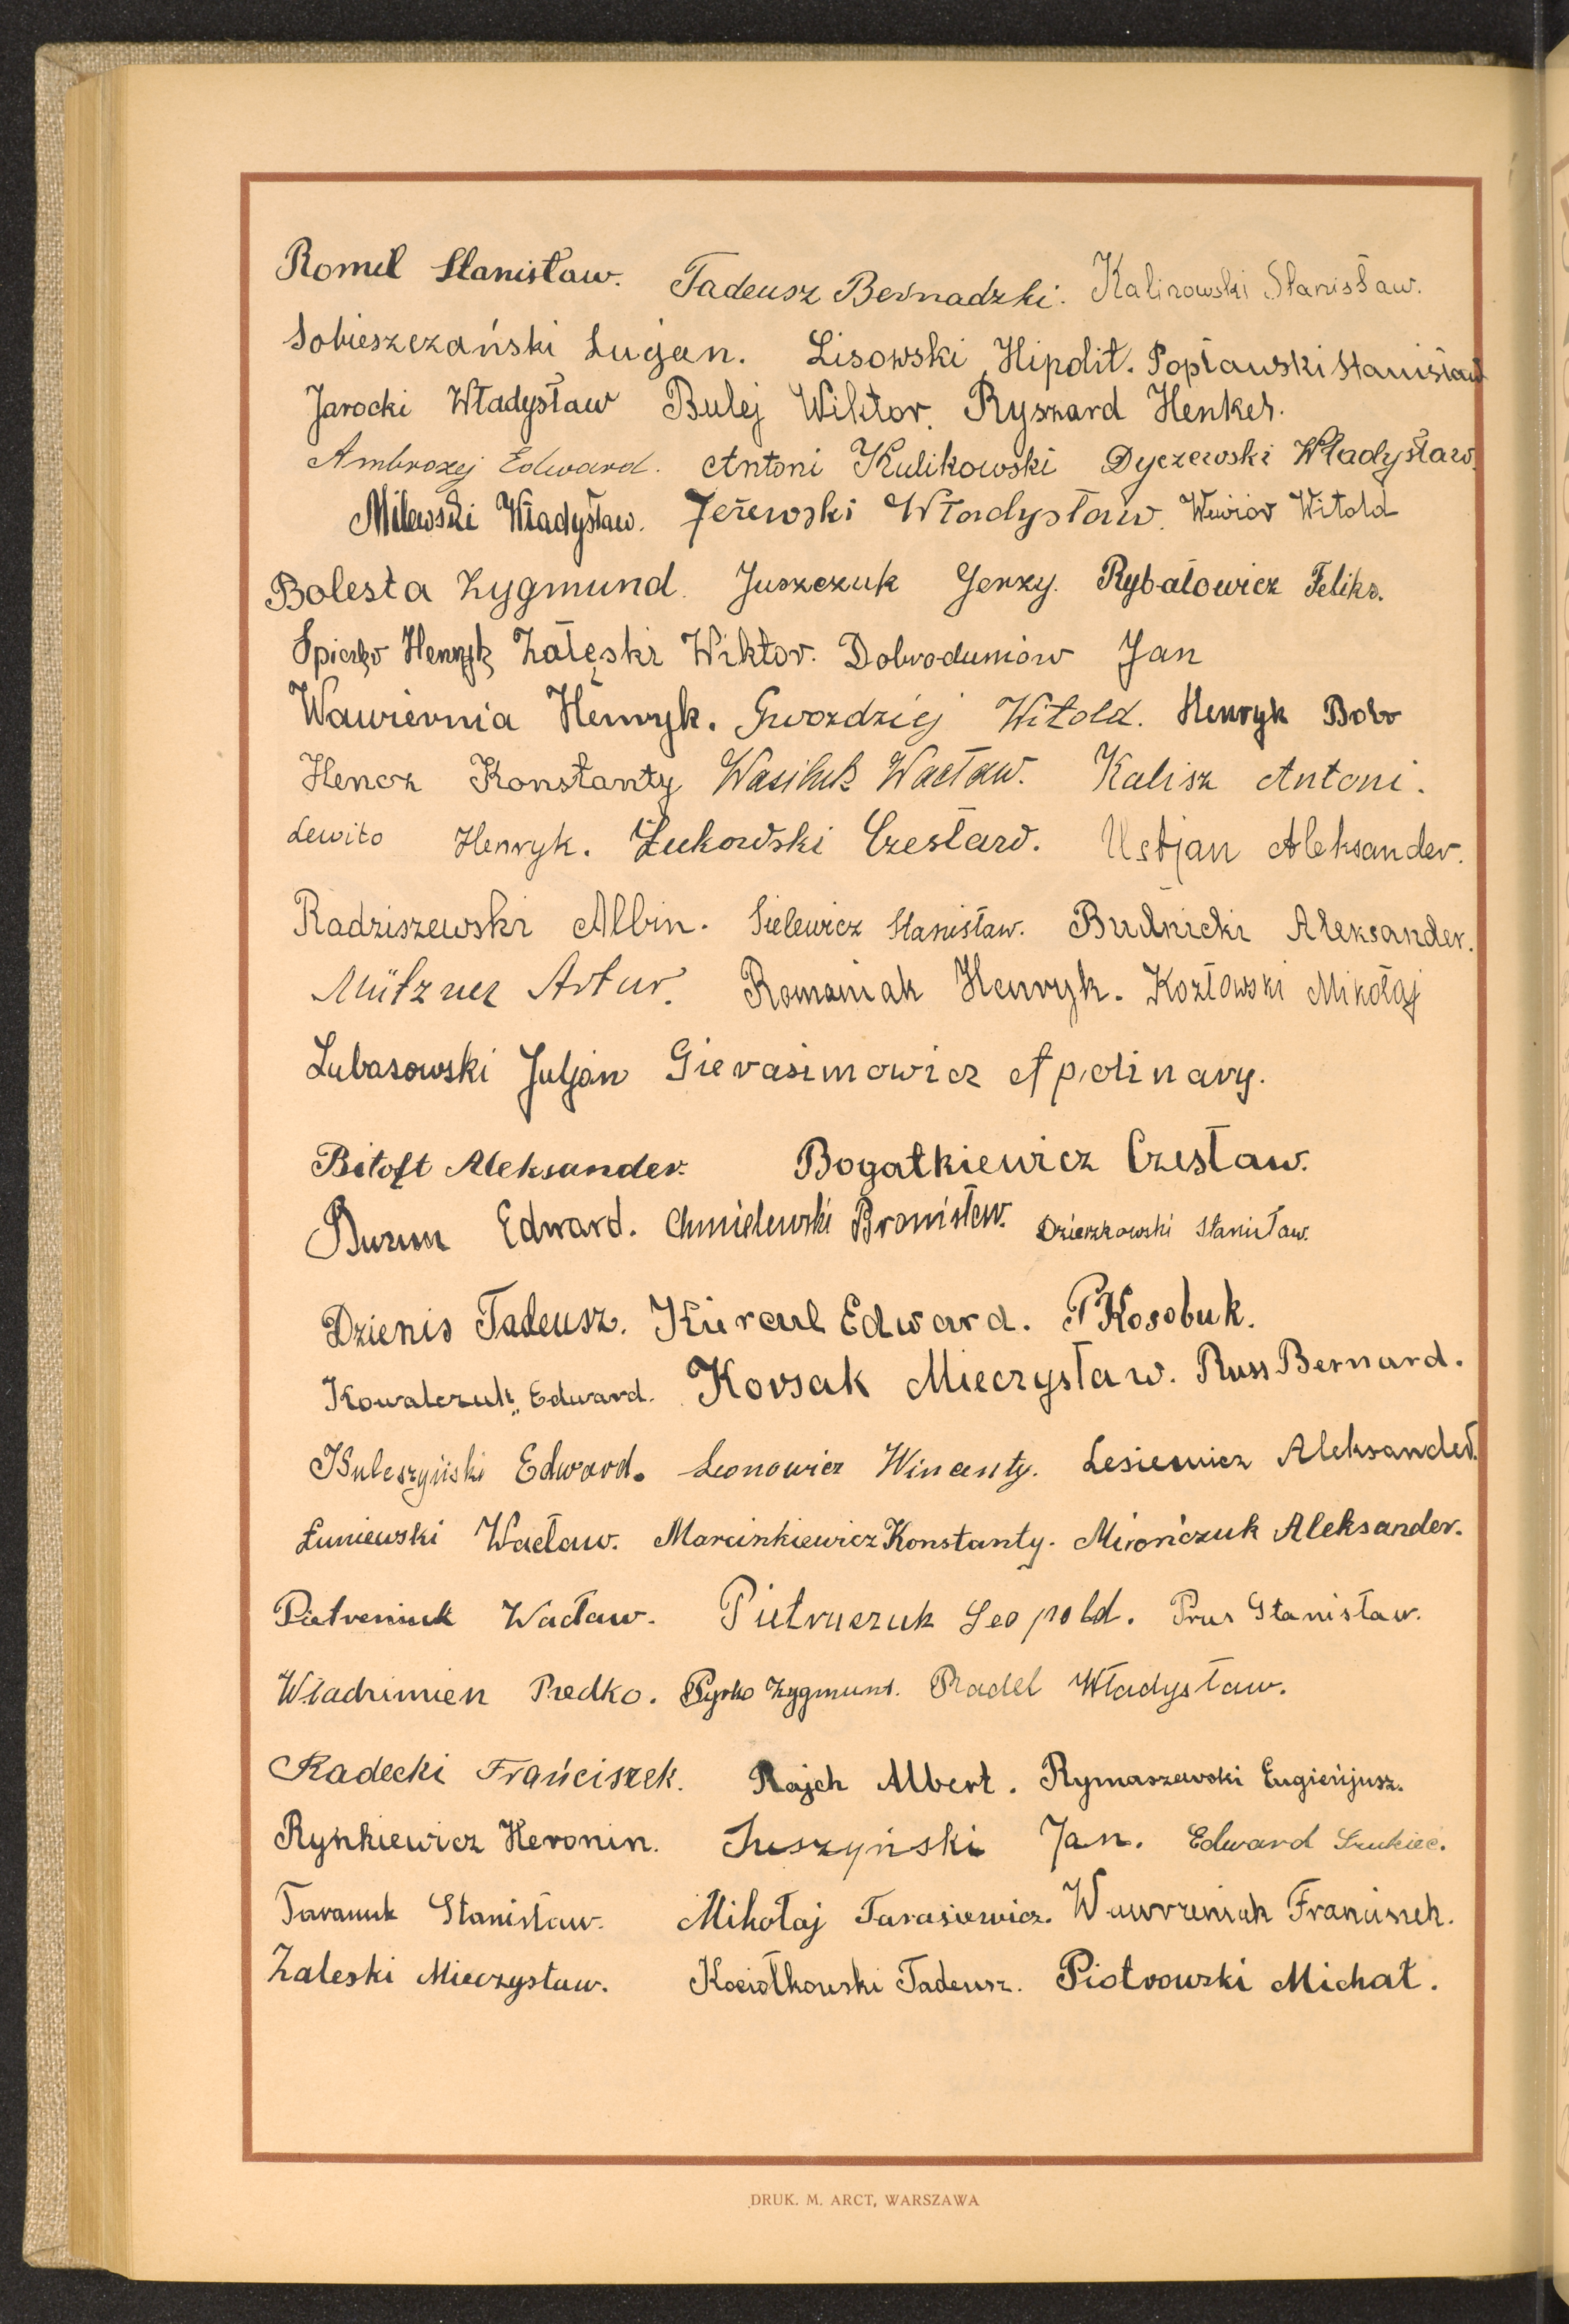 Romel Stanisław. Tadeusz Bernadzki. Kalinowski Stanisław.
Sobieszczański Lucjan. Lisowski Hipolit. Popławski Stanisław
Jarocki Władysław Bulej Wiktor. Ryszard Henker.
Ambrozej Edward. Antoni Kulikowski Dyczewski Władysław.
Milewski Władysław. Jeżewski Władysław. Wewiór Witold
Bolesta Zygmund. Juszczuk Jerzy. Rybałowicz Feliks.
Henryk Załęski Wiktor. Jan
Wawiernia Henryk. Gwozdziej Witold. Henryk Bobr
Hencz Konstanty Wasiluk Wacław. Kalisz Antoni.
Lewito Henryk. Żukowski Czesław. Ustjan Aleksander.
Radziszewski Albin. Sielewicz Stanisław. Budnicki Aleksander.
Mützner Artur. Romaniak Henryk. Kozłowski Mikołaj
Lubasowski Juljan Gierasimowicz Apolinary.
Bitoft Aleksander. Bogatkiewicz Czesław.
Edward. Chmielewski Bronisław. Dzierzkowski Stanisław.
Dzienis Tadeusz. Edward. P Kosobuk.
Kowalczuk Edward. Korsak Mieczysław. Russ Bernard.
Kuleszyński Edward. Leonowicz Wincenty. Lesiewicz Aleksander.
Łuniewski Wacław. Marcinkiewicz Konstanty. Mirończuk Aleksander.
Pietreniuk Wacław. Pietruczuk Leopold. Prus Stanisław.
Władzimierz Predko. Pyrko Zygmunt. Radel Władysław.
Radecki Frańciszek. Rajch Albert. Rymaszewski Eugienjusz.
Rynkiewicz Heronin. Suszyński Jan. Edward Szukieć.
Taraniuk Stanisław. Mikołaj Tarasiewicz. Wawrzeniak Franciszek.
Zaleski Mieczysław. Kociołkowski Tadeusz. Piotrowski Michał.
DRUK. M. ARCT, WARSZAWA